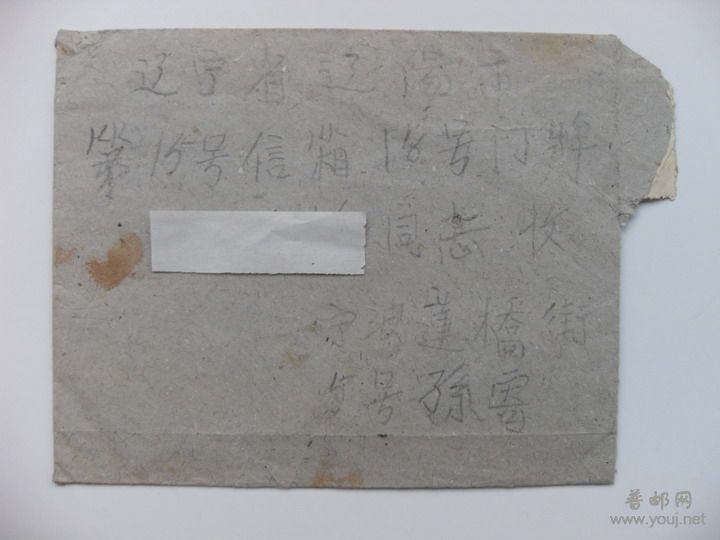 辽宁省辽阳市
第15号信箱18号门牌
同志收
宁波莲橋街
5号孫寄
普邮网
www.youj.net